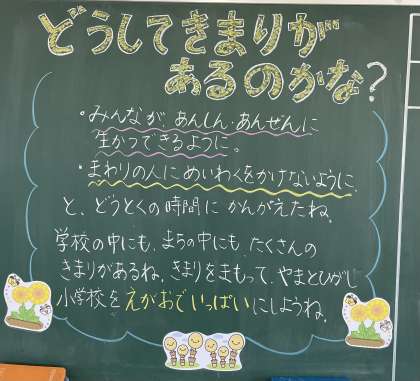 どうしてきまりが
あるのかな?
・みんなが、あんしん・あんぜんに
生かつできるように。
・まわりの人にめいわくをかけないように、
と、どうとくの時間にかんがえたね。
学校の中にも、まちの中にも、たくさんの
きまりがあるね。きまりをまもって、やまとひがし
小学校をえがおでいっぱいにしようね。